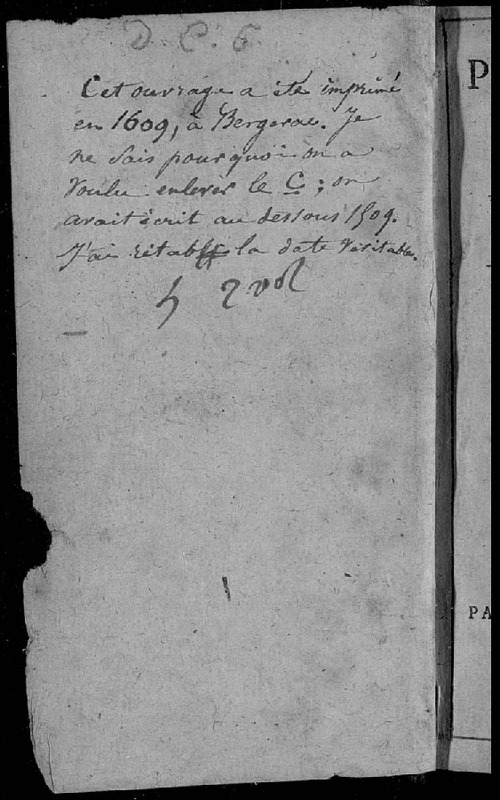 D. C. 6.
Cet ouvrage a été imprimé
en 1609, à Bergerac. Je
ne sais pourquoi on a
voulu enlever le C; on
avait écrit au dessous 1509.
J'ai rétabli la date véritable.
2 vol
P
PA